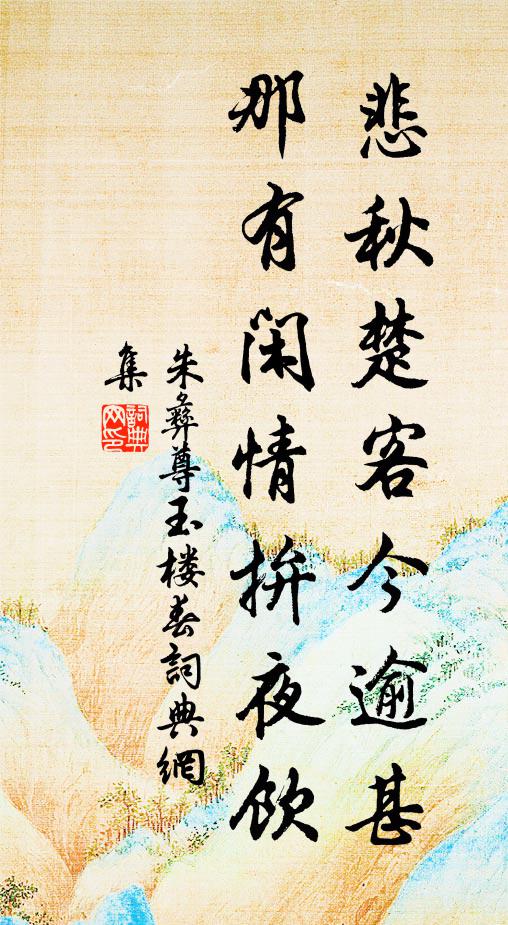 悲秋楚客今逾甚
那有闲情拚夜饮
朱彝尊玉楼春词典網
集
詞典网印